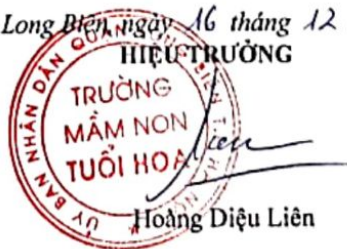 Long Biên, ngày 16 tháng 12
HIỆU TRƯỞNG
ỦY BAN NHÂN DÂN QUẬN
TRƯỜNG
MẦM NON
TUỔI HOA
Hoàng Diệu Liên